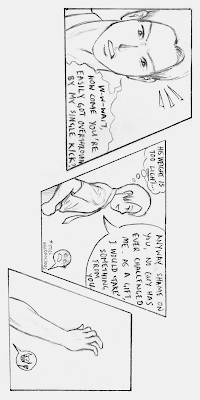 W-W-WAIT,
HOW COME YOU'RE
EASILY GOT OVERTHROWN
BY MY SINGLE KICK
HIS WEIGHT IS
TOO LIGHT...
ANYWAY SHAME ON
YOU, NO GUY HAS
EVER CHALLENGED
ME AS A GIFT.
I WOULD 'TAKE'
SOMETHING
FROM YOU